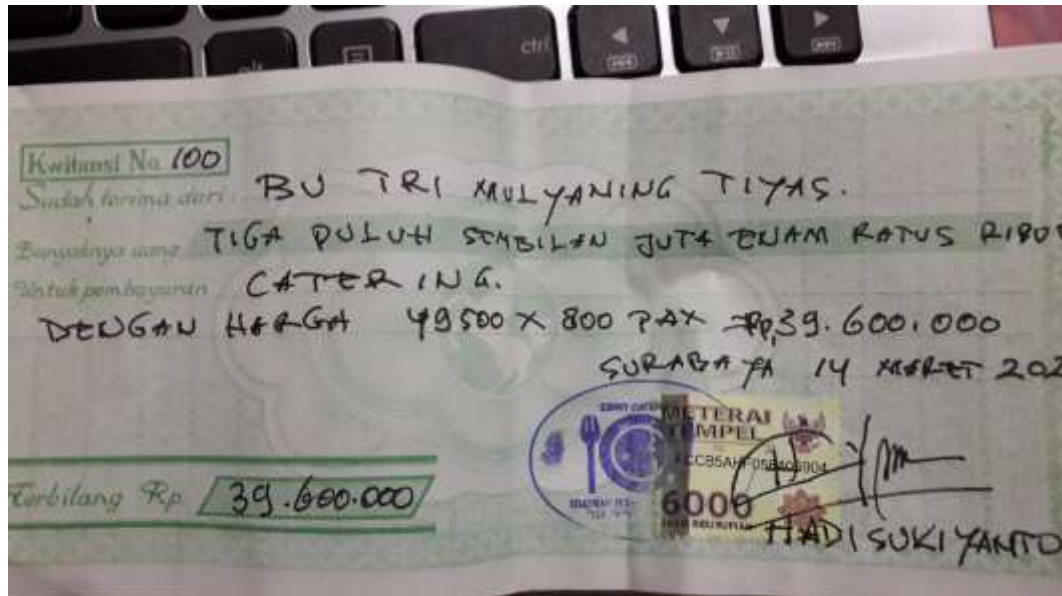 ctrl
Kwitansi No. 100
Sudah terima dari : BU TRI MULYANING TIYAS.
Banyaknya uang TIGA PULUH SEMBILAN JUTA ENAM RATUS RIBU
Untuk pembayaran CATERING.
DENGAN HARGA 49500 X 800 PAX Rp, 39.600.000
SURABAYA 14 MARET 202
METERAI
TEMPEL
6000
ENAM RIBU RUPIAH
Terbilang Rp. 39.600.000
HADI SUKIYANTO